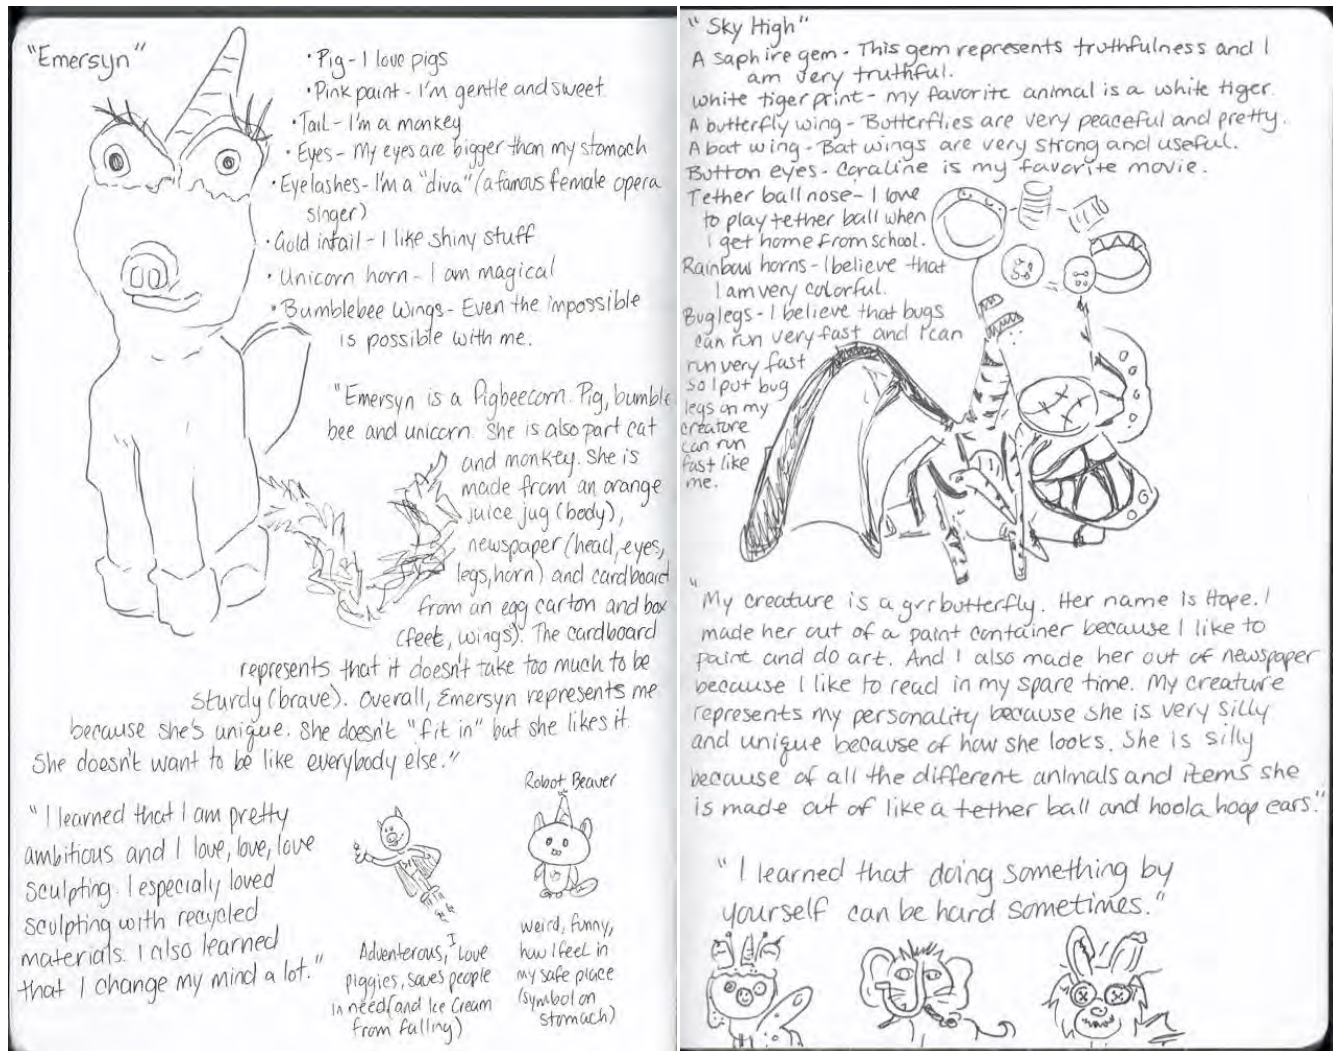 "Emersyn"
• Pig - I love pigs
• Pink paint - I'm gentle and sweet
• Tail - I'm a monkey
• Eyes - My eyes are bigger than my stomach
• Eyelashes - I'm a "diva" (a famous female opera
singer)
• Gold in tail - I like shiny stuff
• Unicorn horn - I am magical
• Bumblebee wings - Even the impossible
is possible with me.
"Emersyn is a Pigbeecorn. Pig, bumble
bee and unicorn. She is also part cat
and monkey. She is
made from an orange
juice jug (body),
newspaper (head, eyes,
legs, horn) and cardboard
from an egg carton and box
(feet, wings). The cardboard
represents that it doesn't take too much to be
sturdy (brave). Overall, Emersyn represents me
because she's unique. She doesn't "fit in" but she likes it.
She doesn't want to be like everybody else."
"I learned that I am pretty
ambitious and I love, love, love
sculpting. I especialy loved
sculpting with recycled
materials. I also learned
that I change my mind a lot."
Adventerous, I love
piggies, saves people
in need (and Ice Cream
from falling)
Robot Beaver
weird, funny,
how I feel in
my safe place
(symbol on
stomach)
"Sky High"
A saphire gem - This gem represents truthfulness and I
am very truthful.
White tiger print - my favorite animal is a white tiger.
A butterfly wing - Butterflies are very peaceful and pretty.
A bat wing - Bat wings are very strong and useful.
Button eyes - Coraline is my favorite movie.
Tether ball nose - I love
to play tether ball when
I get home from school.
Rainbow horns - I believe that
I am very colorful.
Bug legs - I believe that bugs
can run very fast and I can
run very fast
so I put bug
legs on my
creature
can run
fast like
me.
"My creature is a grrbutterfly. Her name is Hope. I
made her out of a paint container because I like to
paint and do art. And I also made her out of newspaper
because I like to read in my spare time. My creature
represents my personality because she is very silly
and unique because of how she looks. She is silly
because of all the different animals and items she
is made out of like a tether ball and hoola hoop ears."
"I learned that doing something by
yourself can be hard sometimes."